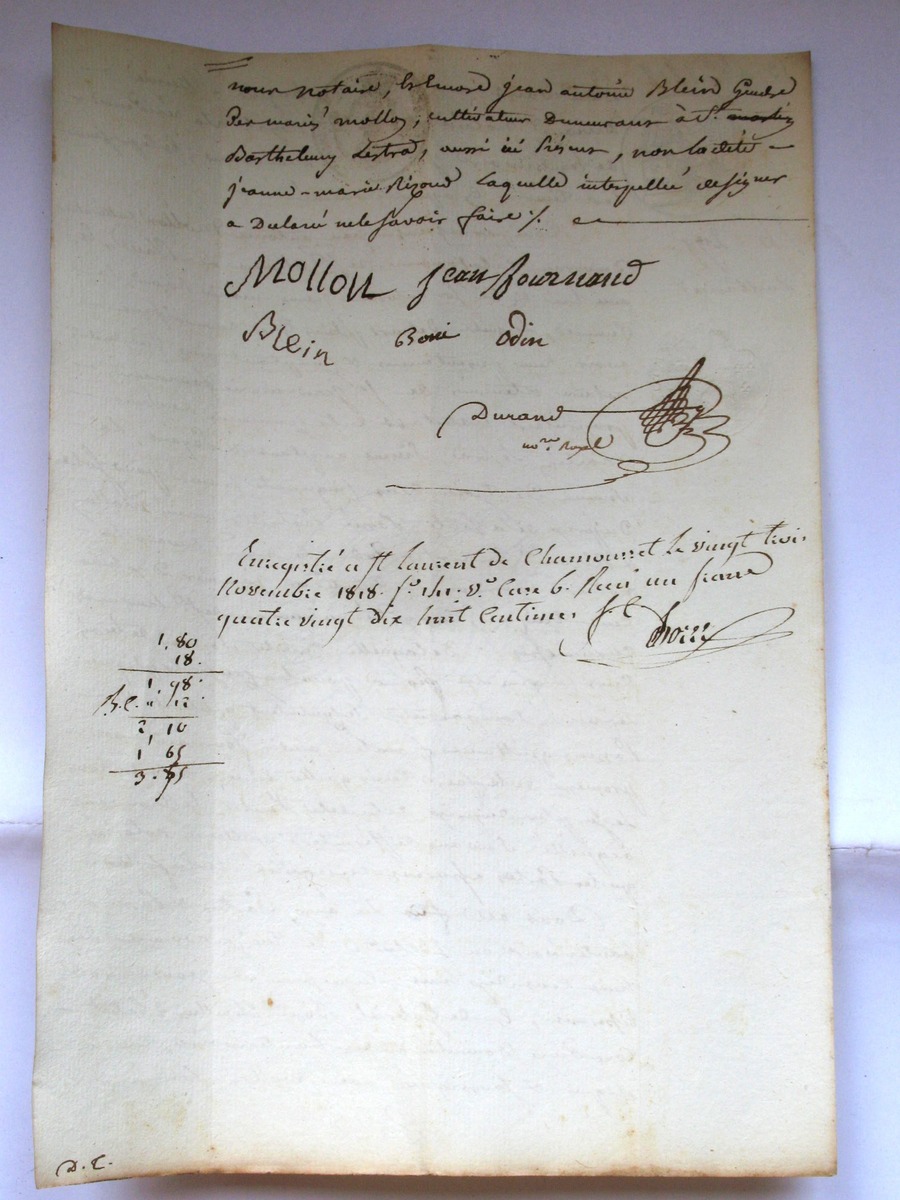 nous notaire, et encore jean antoine Blein Gendre
des mariés mollon, cultivateur Demeurant à St. martin
Barthelemy Lestra, aussi ici présent, non ladite
jeanne-marie laquelle interpellée de signer
a Declaré ne le savoir faire ./.
Mollon jean fournand
Blein Boni Odin
Durand
no.re Royal
Enregistré a St laurent de Chamousset le vingt trois
Novembre 1818. f.o v.o Case 6. Reçu un franc
quatre vingt dix huit Centimes
1,80
18.
1,98.
12
2,10
1,65
3.75
D. C.